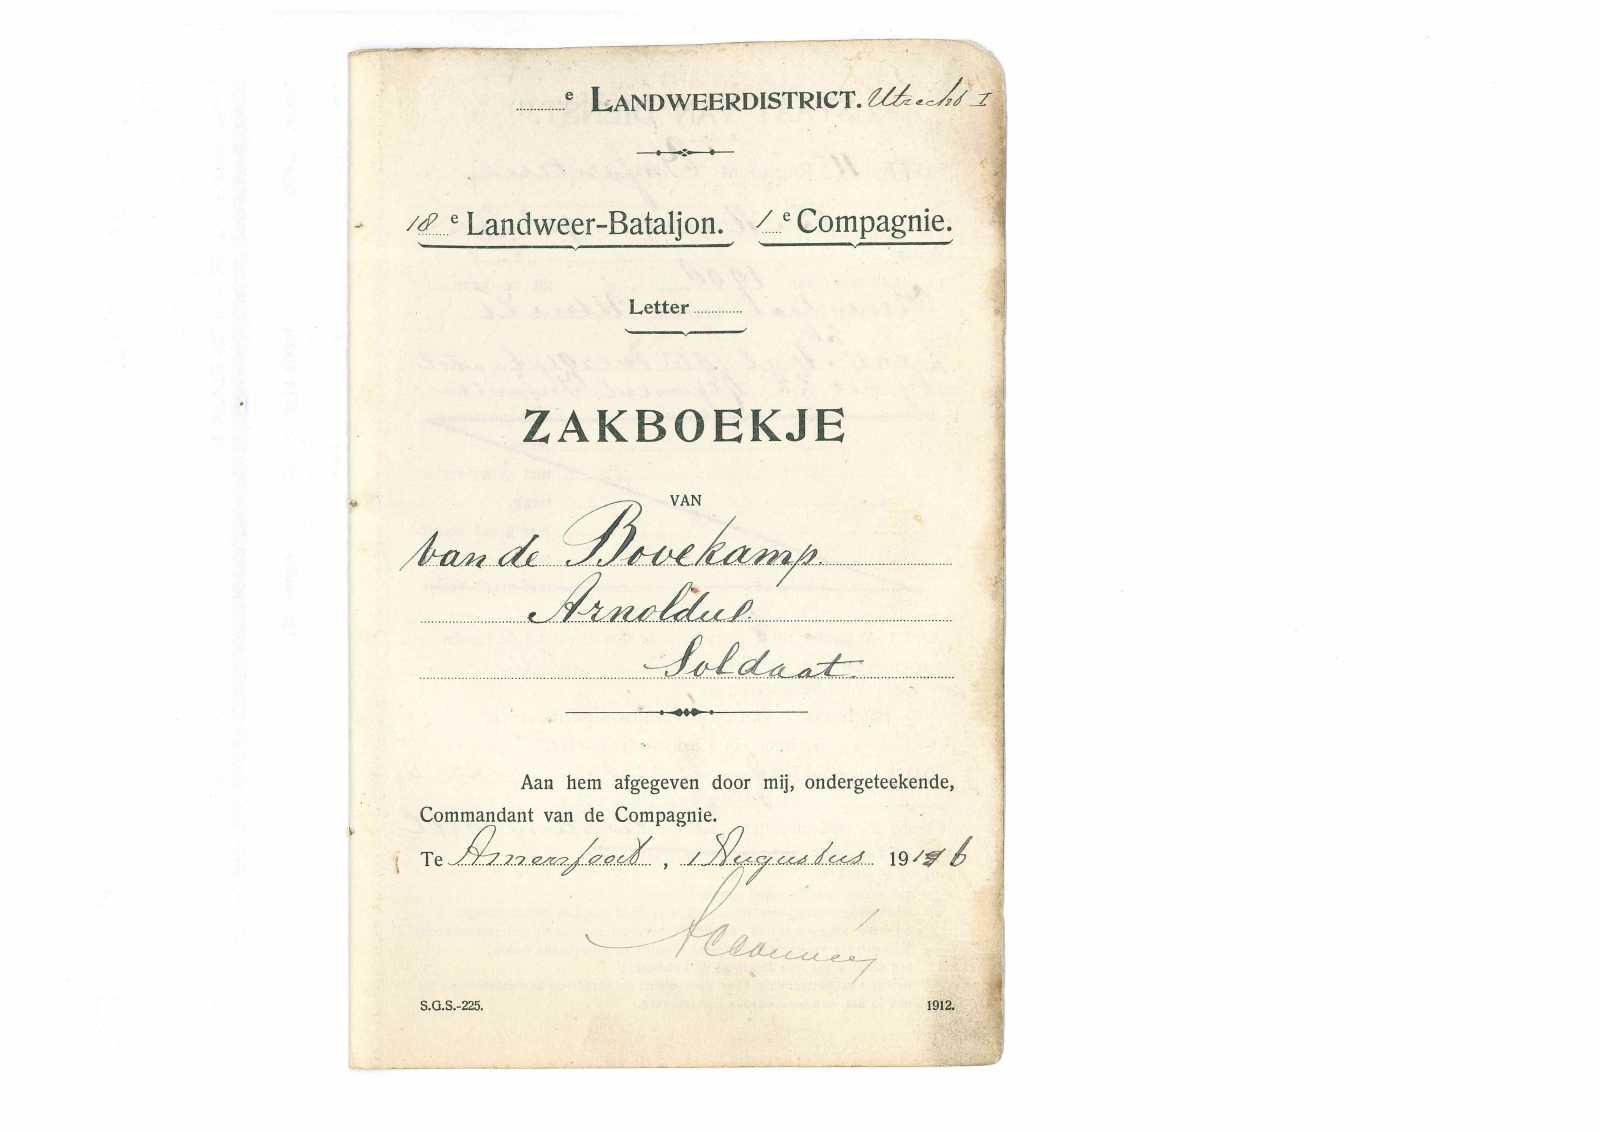 e LANDWEERDISTRICT. Utrecht I
18 e Landweer-Bataljon. 1 e Compagnie.
Letter
ZAKBOEKJE
VAN
van de Bovekamp.
Arnoldus.
Soldaat.
Aan hem afgegeven door mij, ondergeteekende,
Commandant van de Compagnie.
Te Amersfoort, 1 Augustus 1916
S.G.S.-225. 1912.